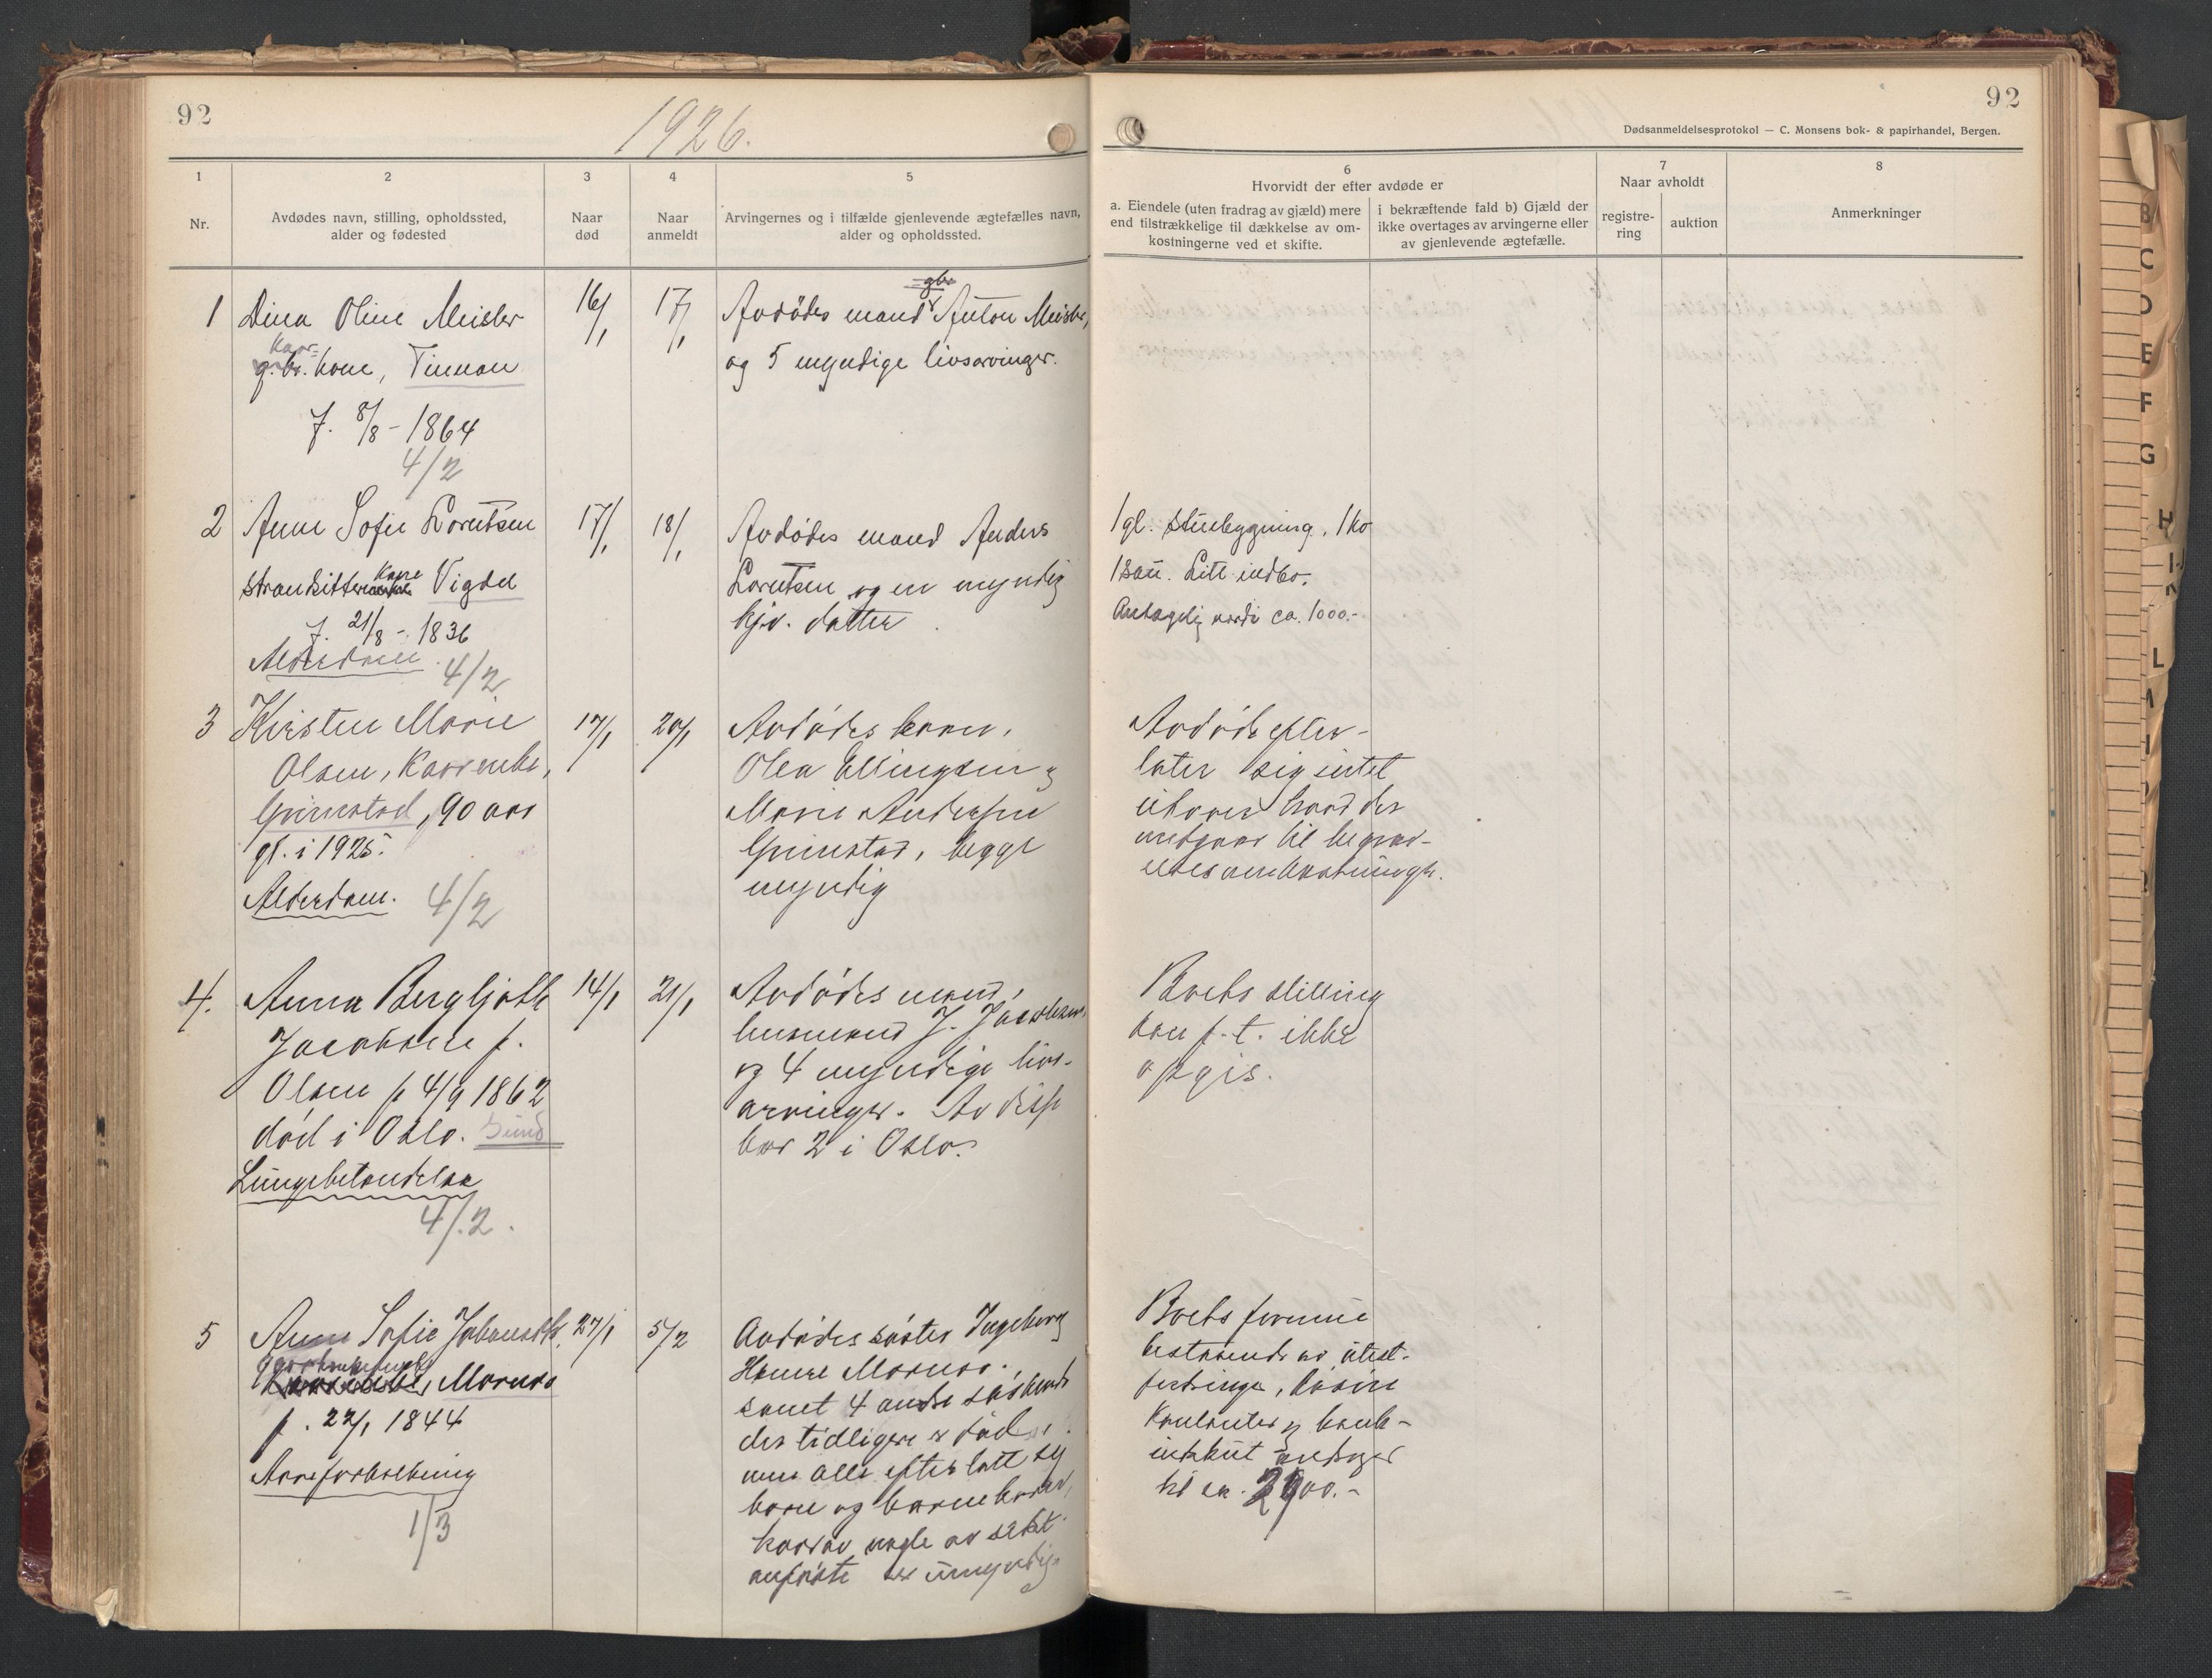 92
1926.
92
Dødsanmeldelsesprotokol — C. Monsens bok- & papirhandel, Bergen.
1
2
3
4
5
6
7
8
Nr.
Avdødes navn, stilling, opholdssted,
alder og fødested
Naar
død
Naar
anmeldt
Arvingernes og i tilfælde gjenlevende ægtefælles navn,
alder og opholdssted.
Hvorvidt der efter avdøde er
a. Eiendele (uten fradrag av gjæld) mere
end tilstrækkelige til dækkelse av om-
kostningerne ved et skifte.
i bekræftende fald b) Gjæld der
ikke overtages av arvingerne eller
av gjenlevende ægtefælle.
Naar avholdt
registre-
ring
auktion
Anmerkninger
1
Dina Oline Meisler
kaar-
g.br. kone,
f. 8/8 - 1864
4/2
16/1
17/1
gbr
Avdødes mand Anton Meisler,
og 5 myndige livsarvinger.
2
Anne Sofie Lorentsen
kone
strandsitter Vigdel
f. 21/8 - 1836
Alderdom
4/2
17/1
18/1
Avdødes mand Anders
Lorentsen og en myndig
datter
1 gl. stuebygning, 1 ko
1 sau. Litt indbo.
Antagelig verdi ca. 1000.-
3
Kirsten Marie
Olsen, Kaarenke,
Grimstad, 90 aar
gl. i 1925.
Alderdom.
4/2
17/1
20/1
Avdødes barn,
Olea Ellingsen og
Marie Andersen
Grimstad, begge
myndig
Avdøde efter-
later sig intet
utover hvad der
medgaar til begrav-
elsesomkostninger.
4.
Anna Bergljotte
Jacobsen f.
Olsen f 4/9 1862
død i Oslo. Sund
Lungebetændelse
4/2.
14/1
21/1
Avdødes mand,
husmand J. Jacobsen,
og 4 myndige livs-
arvinger. Av disse
bor 2 i Oslo.
Boets stilling
kan p.t. ikke
opgis.
5
Anne Sofie Johansdtr.
f. 22/1 1844
Aareforkalkning
1/3
27/1
5/2
Avdødes søster Ingeborg
samt 4 andre søskende
der tidligere er død
men alle efterlatt sig
barn og barnebarn,
hvorav nogle av sidst
anførte er umyndige
Boets formue
bestaaende av utest.
fordringer, løsøre
kontanter og bank-
indskut andrager
til ca. 2900.-